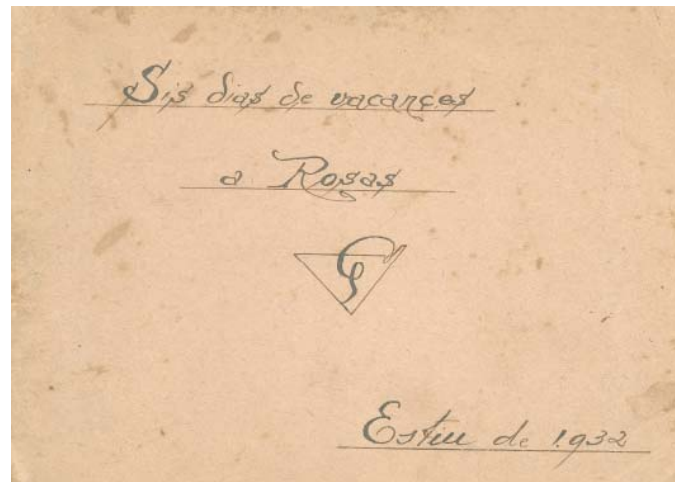 Sis dias de vacançes
a Rosas
G
Estiu de 1.932